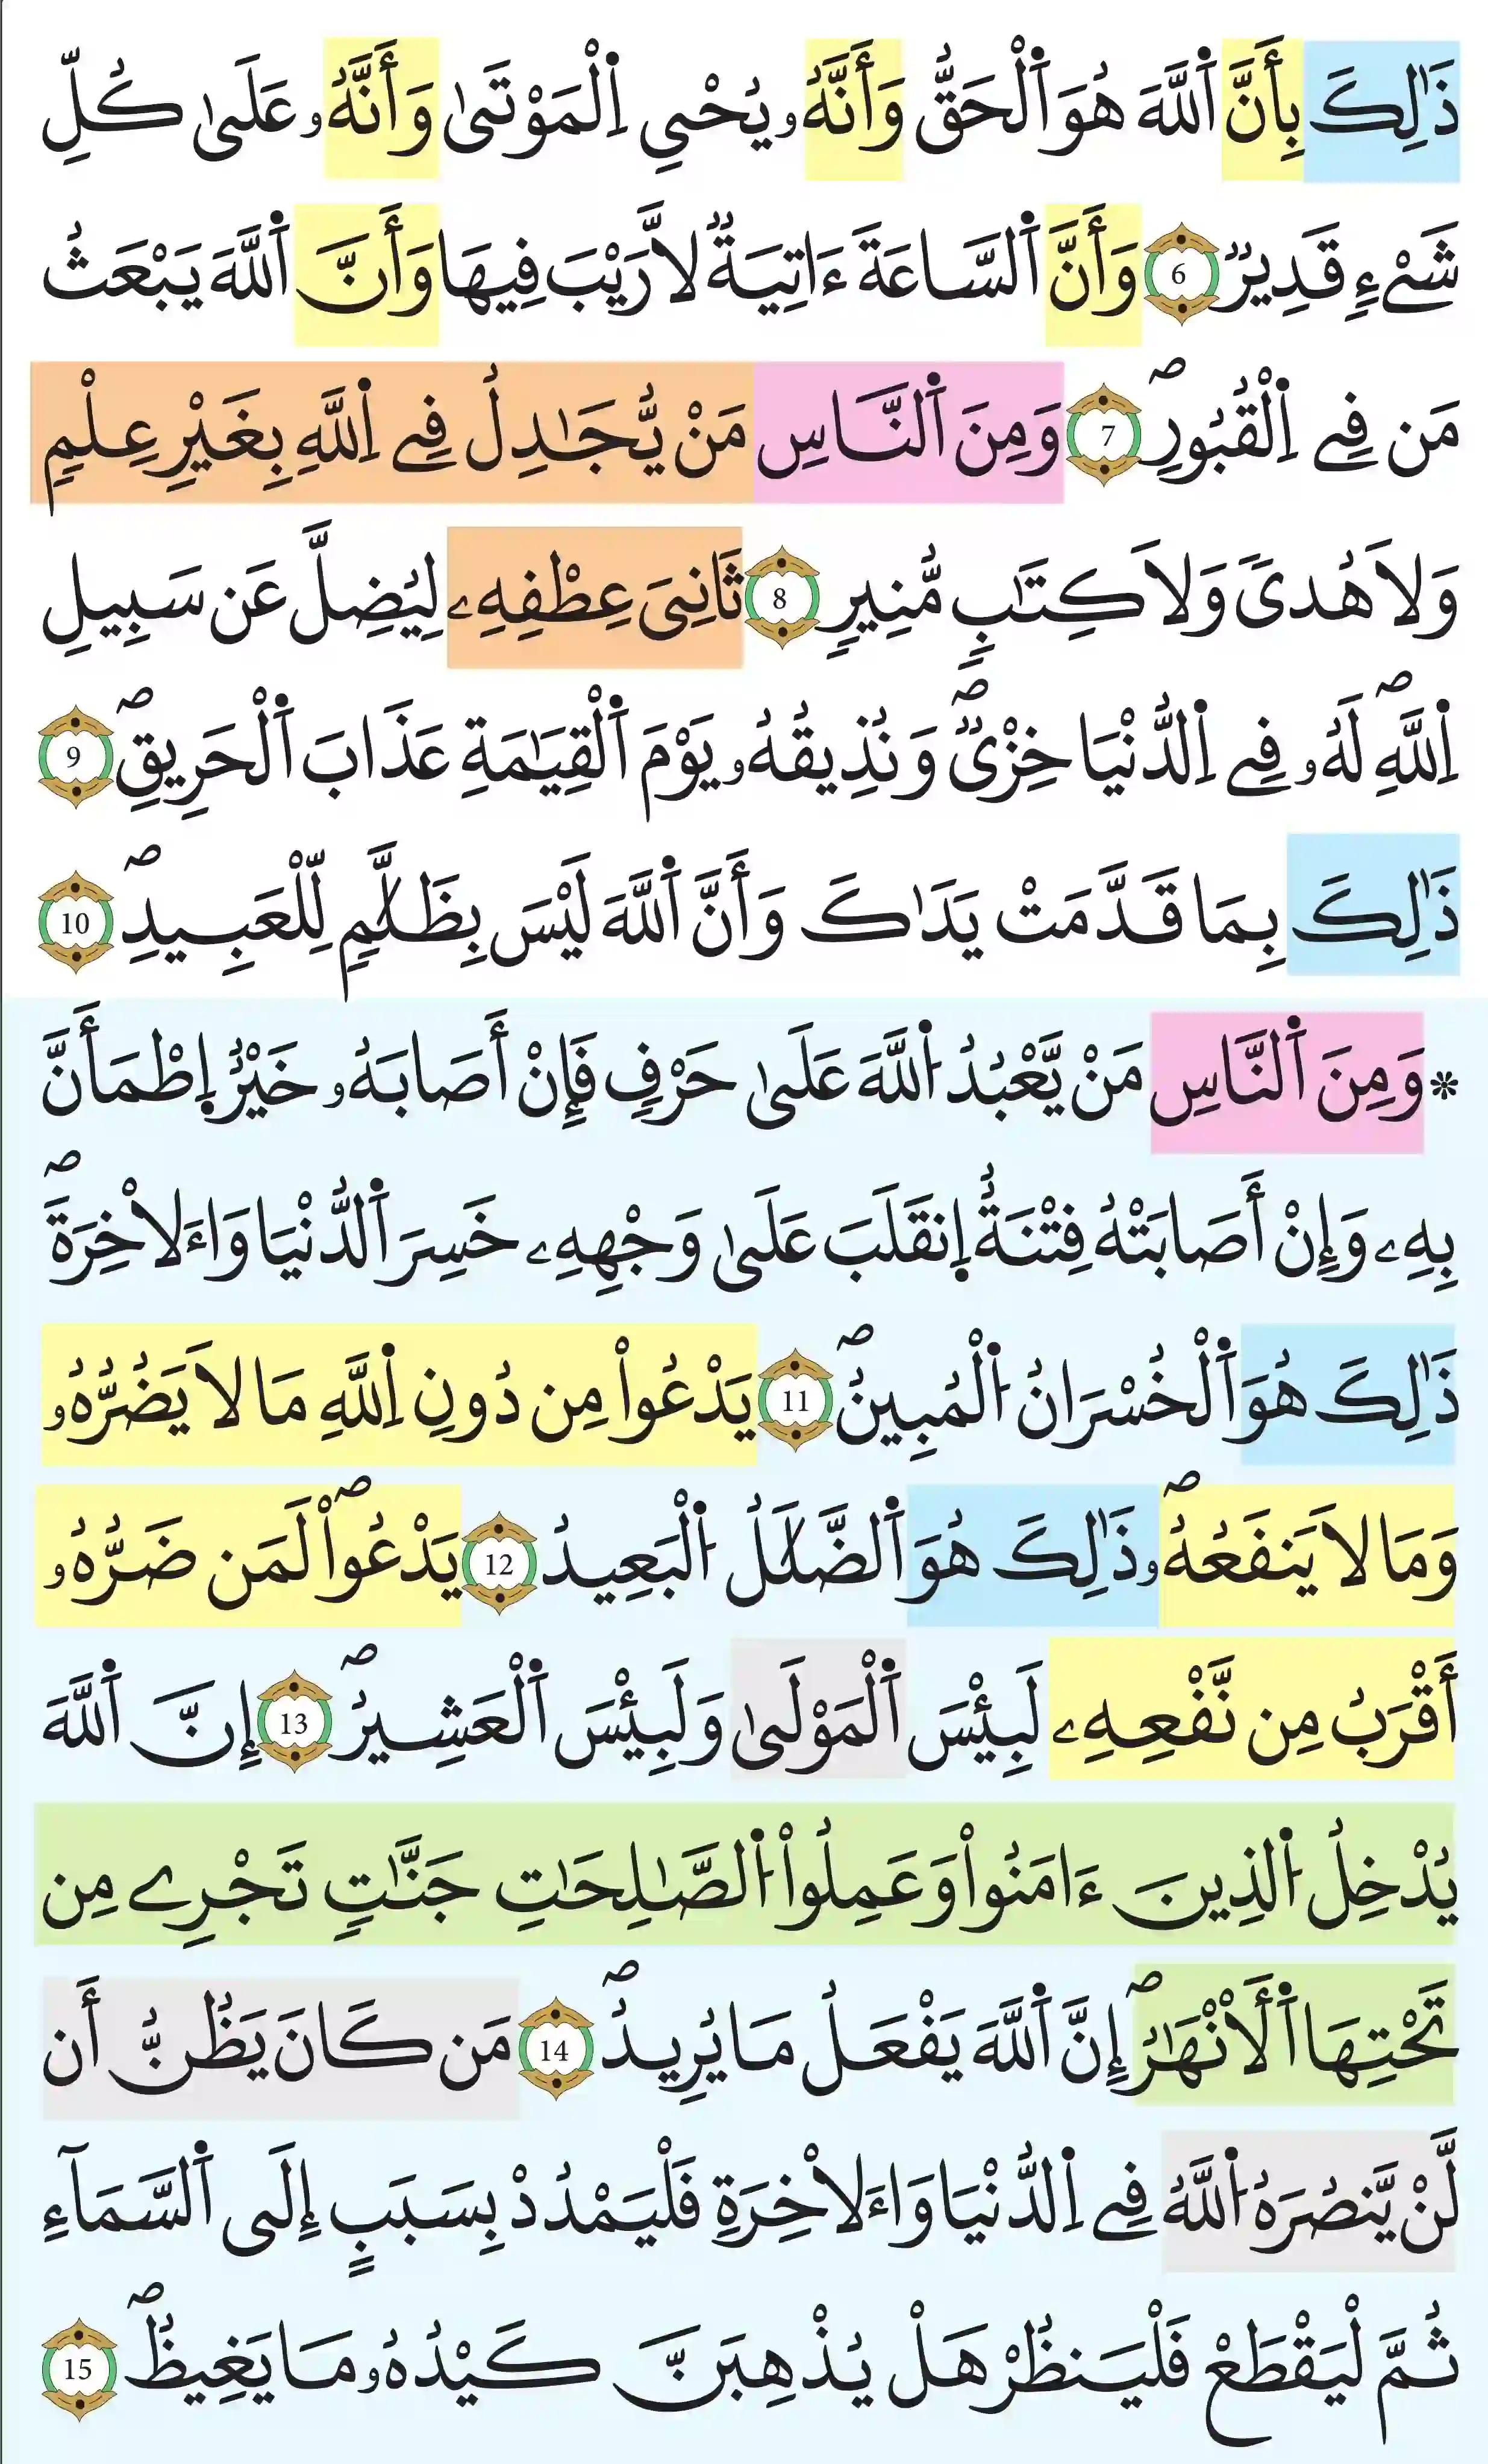 ذَٰلِكَ بِأَنَّ اَ۬للَّهَ هُوَ اَ۬لْحَقُّ وَأَنَّهُۥ يُحْيِ اِ۬لْمَوْتَىٰ وَأَنَّهُۥ عَلَىٰ كُلِّ
شَےْءٖ قَدِيرٞ 6 وَأَنَّ اَ۬لسَّاعَةَ ءَاتِيَةٞ لَّا رَيْبَ فِيهَا وَأَنَّ اَ۬للَّهَ يَبْعَثُ
مَن فِے اِ۬لْقُبُورِۖ 7 وَمِنَ اَ۬لنَّاسِ مَنْ يُّجَٰدِلُ فِے اِ۬للَّهِ بِغَيْرِ عِلْمٖ
وَلَا هُدىٗ وَلَا كِتَٰبٖ مُّنِيرٖ 8 ثَانِيَ عِطْفِهِۦ لِيُضِلَّ عَن سَبِيلِ
اِ۬للَّهِۖ لَهُۥ فِے اِ۬لدُّنْيَا خِزْيٞۖ وَنُذِيقُهُۥ يَوْمَ اَ۬لْقِيَٰمَةِ عَذَابَ اَ۬لْحَرِيقِۖ 9
ذَٰلِكَ بِمَا قَدَّمَتْ يَدَٰكَ وَأَنَّ اَ۬للَّهَ لَيْسَ بِظَلَّٰمٖ لِّلْعَبِيدِۖ 10
* وَمِنَ اَ۬لنَّاسِ مَنْ يَّعْبُدُ اُ۬للَّهَ عَلَىٰ حَرْفٖ فَإِنْ أَصَابَهُۥ خَيْرٌ اِ۪طْمَأَنَّ
بِهِۦ وَإِنْ أَصَابَتْهُ فِتْنَةٌ اِ۪نقَلَبَ عَلَىٰ وَجْهِهِۦ خَسِرَ اَ۬لدُّنْيَا وَا۬ءَلَاخِرَةَۖ
ذَٰلِكَ هُوَ اَ۬لْخُسْرَانُ اُ۬لْمُبِينُۖ 11 يَدْعُواْ مِن دُونِ اِ۬للَّهِ مَا لَا يَضُرُّهُۥ
وَمَا لَا يَنفَعُهُۥۖ ذَٰلِكَ هُوَ اَ۬لضَّلَٰلُ اُ۬لْبَعِيدُ 12 يَدْعُواْۖ لَمَن ضَرُّهُۥ
أَقْرَبُ مِن نَّفْعِهِۦ لَبِئْسَ اَ۬لْمَوْلَىٰ وَلَبِئْسَ اَ۬لْعَشِيرُۖ 13 إِنَّ اَ۬للَّهَ
يُدْخِلُ اُ۬لذِينَ ءَامَنُواْ وَعَمِلُواْ اُ۬لصَّٰلِحَٰتِ جَنَّٰتٖ تَجْرِے مِن
تَحْتِهَا اَ۬لْأَنْهَٰرُۖ إِنَّ اَ۬للَّهَ يَفْعَلُ مَا يُرِيدُۖ 14 مَن كَانَ يَظُنُّ أَن
لَّنْ يَّنصُرَهُ اُ۬للَّهُ فِے اِ۬لدُّنْيَا وَا۬ءَلَاخِرَةِ فَلْيَمْدُدْ بِسَبَبٍ إِلَى اَ۬لسَّمَآءِ
ثُمَّ لْيَقْطَعْ فَلْيَنظُرْ هَلْ يُذْهِبَنَّ كَيْدُهُۥ مَا يَغِيظُۖ 15